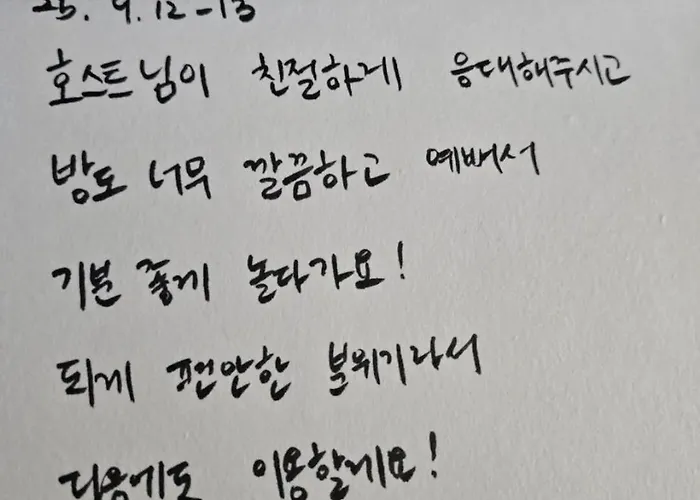 25. 9. 12-13
호스트님이 친절하게 응대해주시고
방도 너무 깔끔하고 예뻐서
기분 좋게 놀다가요!
되게 편안한 분위기라서
다음에도 이용할게요!